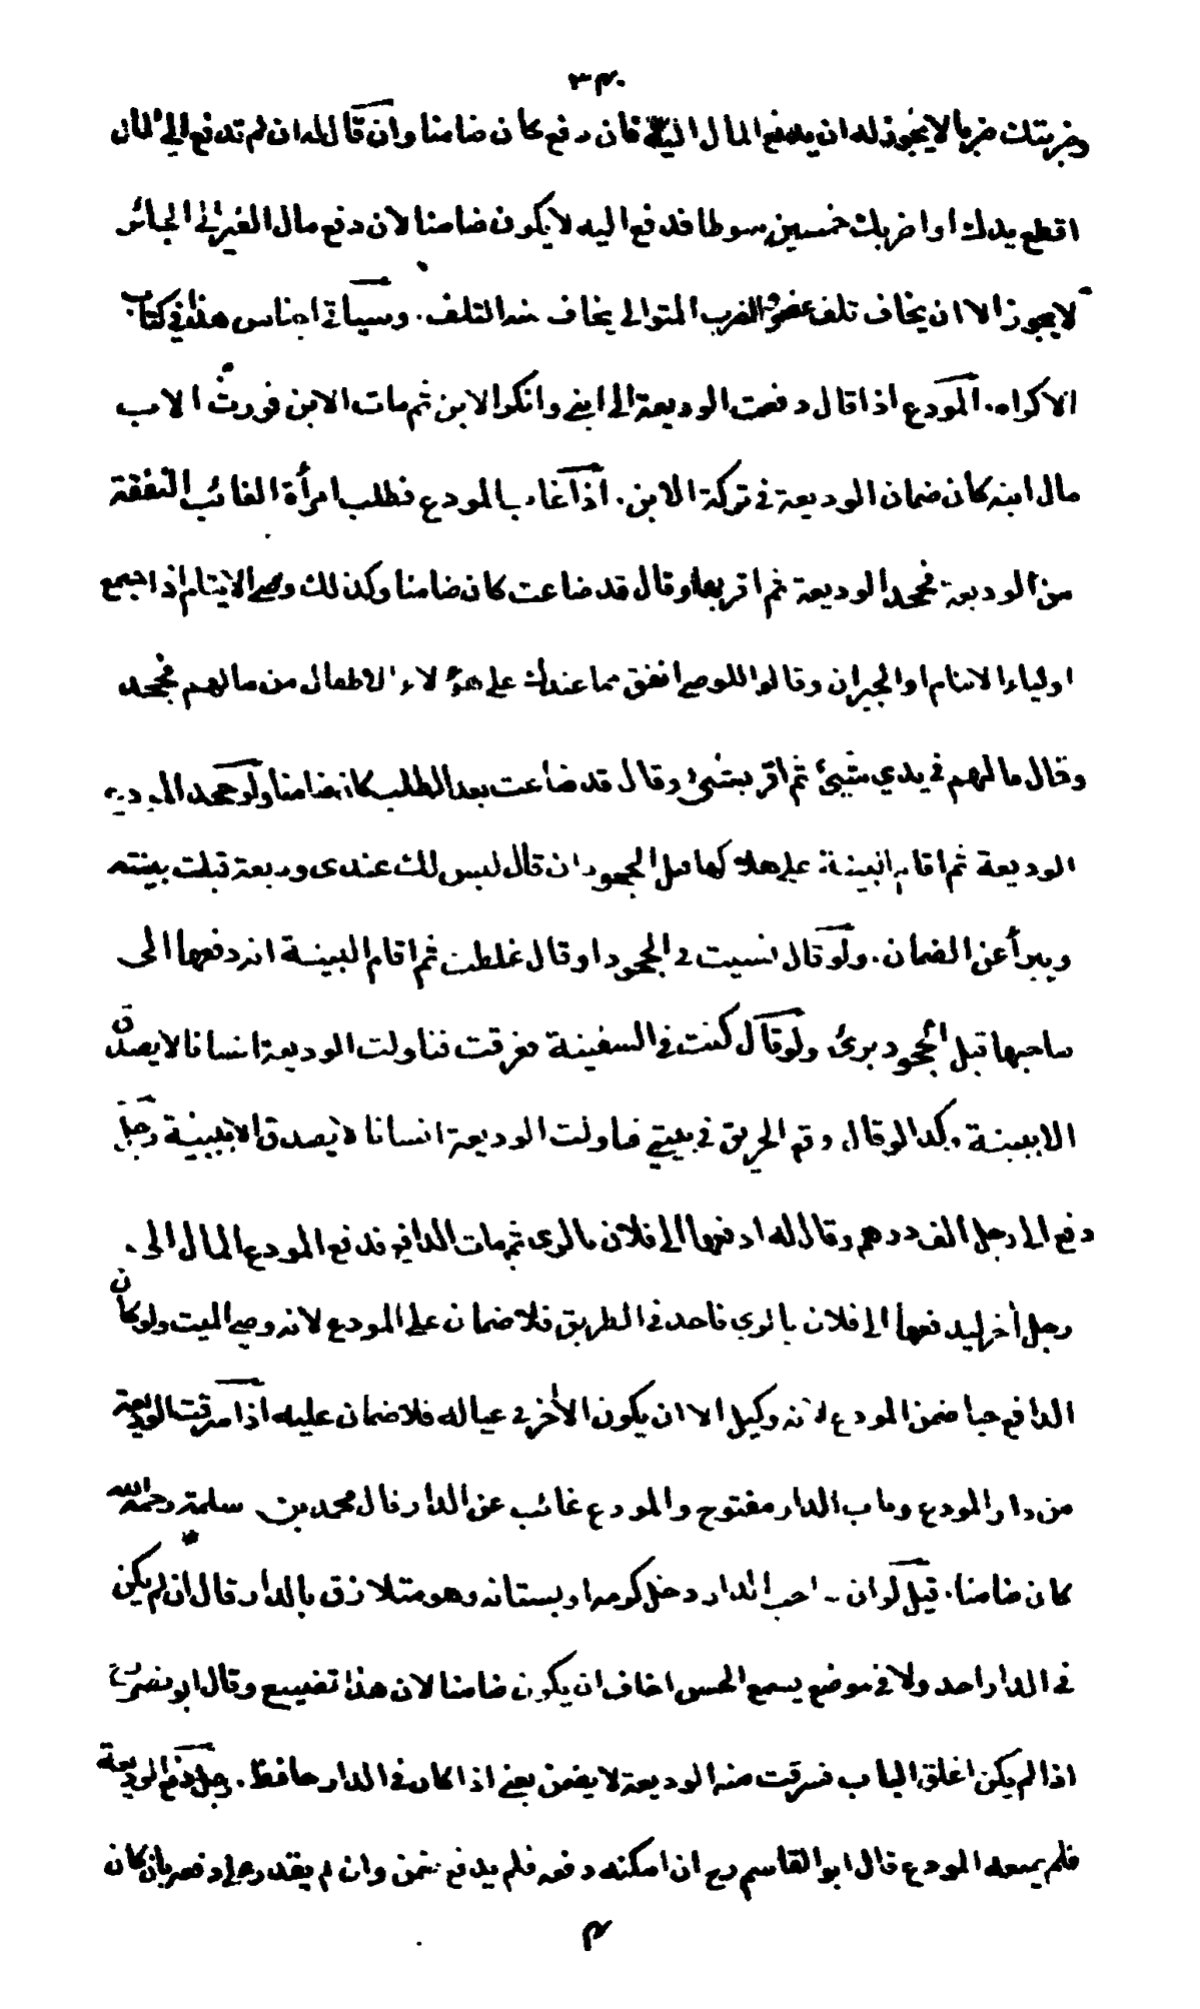 ٣٤٠
وضربتك ضربا لا يجوز له ان يدفع المال اليه فان دفع كان ضامنا وان قال له ان لم تدفع الي المال
اقطع يدك او اضربك خمسين سوطا فدفع اليه لا يكون ضامنا لان دفع مال الغير الى الجائر
لا يجوز الا ان يخاف تلف عضو والضرب المتوالي يخاف منه التلف. وسيأتي اجناس هذا في كتاب
الاكراه. المودع اذا قال دفعت الوديعة الى ابني وانكر الابن ثم مات الابن فورث الاب
مال ابنه كان ضمان الوديعة في تركة الابن. اذا غاب المودع فطلب امرأة الغائب النفقة
من الوديعة فجحد الوديعة ثم اقر بها وقال قد ضاعت كان ضامنا وكذلك وصي الايتام اذا اجتمع
اولياء الايتام او الجيران وقالوا للوصي انفق مما عندك على هؤلاء الاطفال من مالهم فجحد
وقال ما لهم في يدي شيئ ثم اقر بشيئ وقال قد ضاعت بعد الطلب كان ضامنا ولو جحد المودع
الوديعة ثم اقام البينة على هلاكها قبل الجحود ان قال ليس لك عندى وديعة قبلت بينته
ويبرأ عن الضمان. ولو قال نسيت في الجحود او قال غلطت ثم اقام البينة انه دفعها الى
صاحبها قبل الجحود برئ ولو قال كنت في السفينة فغرقت فناولت الوديعة انسانا لا يصدق
الا ببينة وكذا لو قال وقع الحريق في بيتي فناولت الوديعة انسانا لا يصدق الا ببينة رجل
دفع الى رجل الف درهم وقال له ادفعها الى فلان بالري ثم مات الدافع فدفع المودع المال الى
رجل أخر ليدفعها الى فلان بالري فاخذ في الطريق فلا ضمان على المودع لانه وصي الميت ولو كان
الدافع حيا ضمن المودع لانه وكيل الا ان يكون الأخر في عياله فلا ضمان عليه اذا سرقت الوديعة
من دار المودع وباب الدار مفتوح والمودع غائب عن الدار قال محمد بن سلمة رحمه الله
كان ضامنا. قيل لو ان صاحب الدار دخل كرمه او بستانه وهو متلازق بالدار قال ان لم يكن
في الدار احد ولا في موضع يسمع الحس اخاف ان يكون ضامنا لان هذا تضييع وقال ابو نصر رح
اذا لم يكن اغلق الباب فسرقت منه الوديعة لا يضمن يعني اذا كان في الدار حافظ. رجل دفع الوديعة
فلم يمنعه المودع قال ابو القاسم رح ان امكنه دفعه فلم يدفع ضمن وان لم يقدر على دفعه بان كان
م